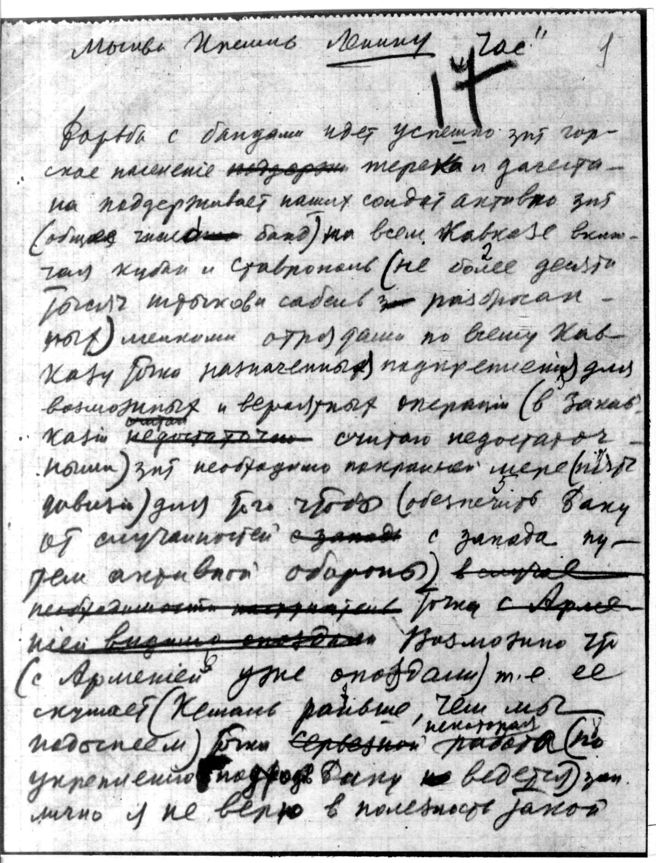 Москва Кремль Ленину "Час" 1
17
Борьба с бандами идет успешно зпт гор-
ское население поддерж терека и дагеста-
на поддерживает наших солдат активно зпт
(общее число банд) на всем Кавказе вклю-
чая кубан и ставрополь (не более 2 десяти
тысяч штыков и сабель з разбросан-
ных) мелкими отрядами по всему Кав-
казу точка назначенных подкреплений для
возможных и вероятных операций (в Закав-
казии недостаточно считаю недостаточ-
ными) зпт необходимо покрайней мере (пять
дивизий) для того чтобы (обезпечить 5 Баку
от случайностей с запада с запада пу-
тем активной обороны) в случае
необходимости точка с Арме-
нией видимо опоздали Возможно что
(с Арменией уже опоздали) т.е. ее
скушает (Кемаль раньше, чем мы
некоторая
подоспеем) точка серьезной работа (по
укреплению Баку ведется) зпт
лично я не верю в полезность такой